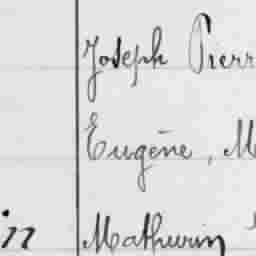 Joseph Pierr
Eugène, M
in Mathurin